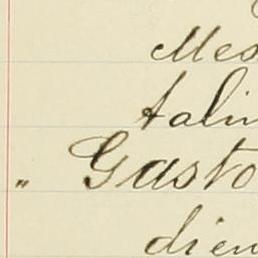 Mes
talin
" Gasto
dien